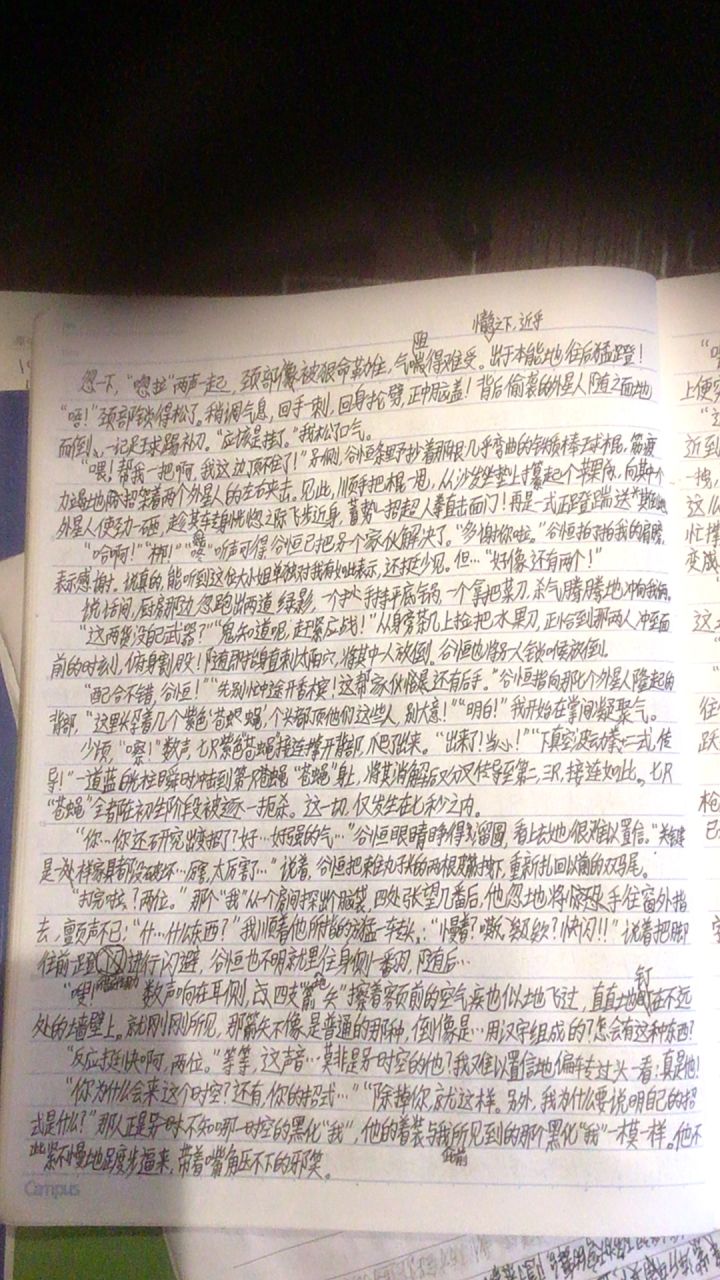 情急之下，近乎
忽下，"唿拉"两声一起，颈部像被狠命勒住，气喘得难受。出于本能地往后猛蹬！
"唔！"颈部锁得松了。稍调气息，回手一刺，回身抡劈，正中脑盖！背后偷袭的外星人随之面地
而倒，一记足球踢补刀。"应该是挂了。"我松了口气。
"喂！帮我一把啊，我这边顶不住了！"另侧，谷恒条野抄着那根几乎弯曲的铁质棒球棍，筋疲
力竭地招架着两个外星人的左右夹击。见此，顺手把棍一甩，从沙发坐垫上拿起个苹果，向其中个
外星人使劲一砸，趁其恍惚之际飞步近身，蓄势一招超人拳直击面门！再是一式正蹬踹送
"哈啊！""梆！""咚"听声可得谷恒已把另个家伙解决了。"多谢你啦。"谷恒拍了拍我的肩膀，
表示感谢。说真的，能听到这位大小姐单独对我有如此表示，还挺少见。但…"好像还有两个！"
说话间，厨房那边忽跑出两道绿影，一个手持平底锅，一个拿把菜刀，杀气腾腾地冲向我俩。
"这两货没自己武器？""鬼知道呢，赶紧应战！"从身旁茶几上捡把水果刀，正恰到那两人冲至面
前的时刻，俯身割股！随即起身直刺太阳穴，将其中一人放倒。谷恒也将另人锁喉放倒。
"配合不错，谷恒！""先别忙途开香槟！这帮家伙怕是还有后手。"谷恒指向那几个外星人隆起的
背部，"这里头是着几个紫色'苍蝇'，个头都顶他们这些人，别大意！""明白！"我开始在掌间凝聚气。
少顷，"嚓！"数声，七只紫色"苍蝇"接连撑开背部，爬了出来。"出来了！当心！""下真空波动拳二式，传
导！"一道蓝白光柱瞬时冲击到第一只"苍蝇"身上，将其消解后又分叉传导至第二，三只，接连如此。七只
"苍蝇"全都在初生阶段被逐一扼杀。这一切，仅发生在七秒之内。
"你…你还研究出变招了？好…好强的气…"谷恒眼睛睁得溜圆，看上去她很难以置信。"关键
是一处样家具都没破坏…厉害，太厉害了…"说着，谷恒把束住丸子头的两根发簪拔下，重新扎回以前的双马尾。
"打完啦？两位。"那个"我"从一个房间探出个脑袋，四处张望几番后，他忽地将惊恐手往窗外指
去，颤声不已："什…什么东西？"我顺着他所指的猛一转头："慢着？喂，不是吧？快闪！！"说着把脚
往前一蹬进行闪避，谷恒也不明就里往身侧一翻，随后…
"嗖！"数声响在耳侧，三、四支"箭矢"擦着额前的空气疾也似地飞过，直直地钉在不远
处的墙壁上。就刚刚所见，那箭矢不像是普通的那种，倒像是…用汉字组成的？怎会有这种东西？
"反应挺快啊，两位。"等等，这声音…莫非是另时空的他？我难以置信地偏转过头一看：真是他！
"你为什么会来这个时空？还有，你的招式…""除掉你，就这样。另外，我为什么要说明自己的招
式是什么？"那人正是另一时不知哪一时空的黑化"我"，他的着装与我此前所见到的那个黑化"我"一模一样。他不
紧不慢地踱步逼来，带着嘴角压不下的邪笑。
Campus